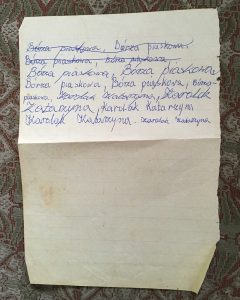 Bórza piaskowa, Bórza piaskowa
Bórza piaskowa, Bórza piaskowa
Bórza piaskowa, Bórza piaskowa
Bórza piaskowa, Bórza piaskowa, Bórza
piaskowa, Karolak Katarzyna, Karolak
Katarzyna, Karolak Katarzyna
Karolak Katarzyna. Karolak Katarzyna